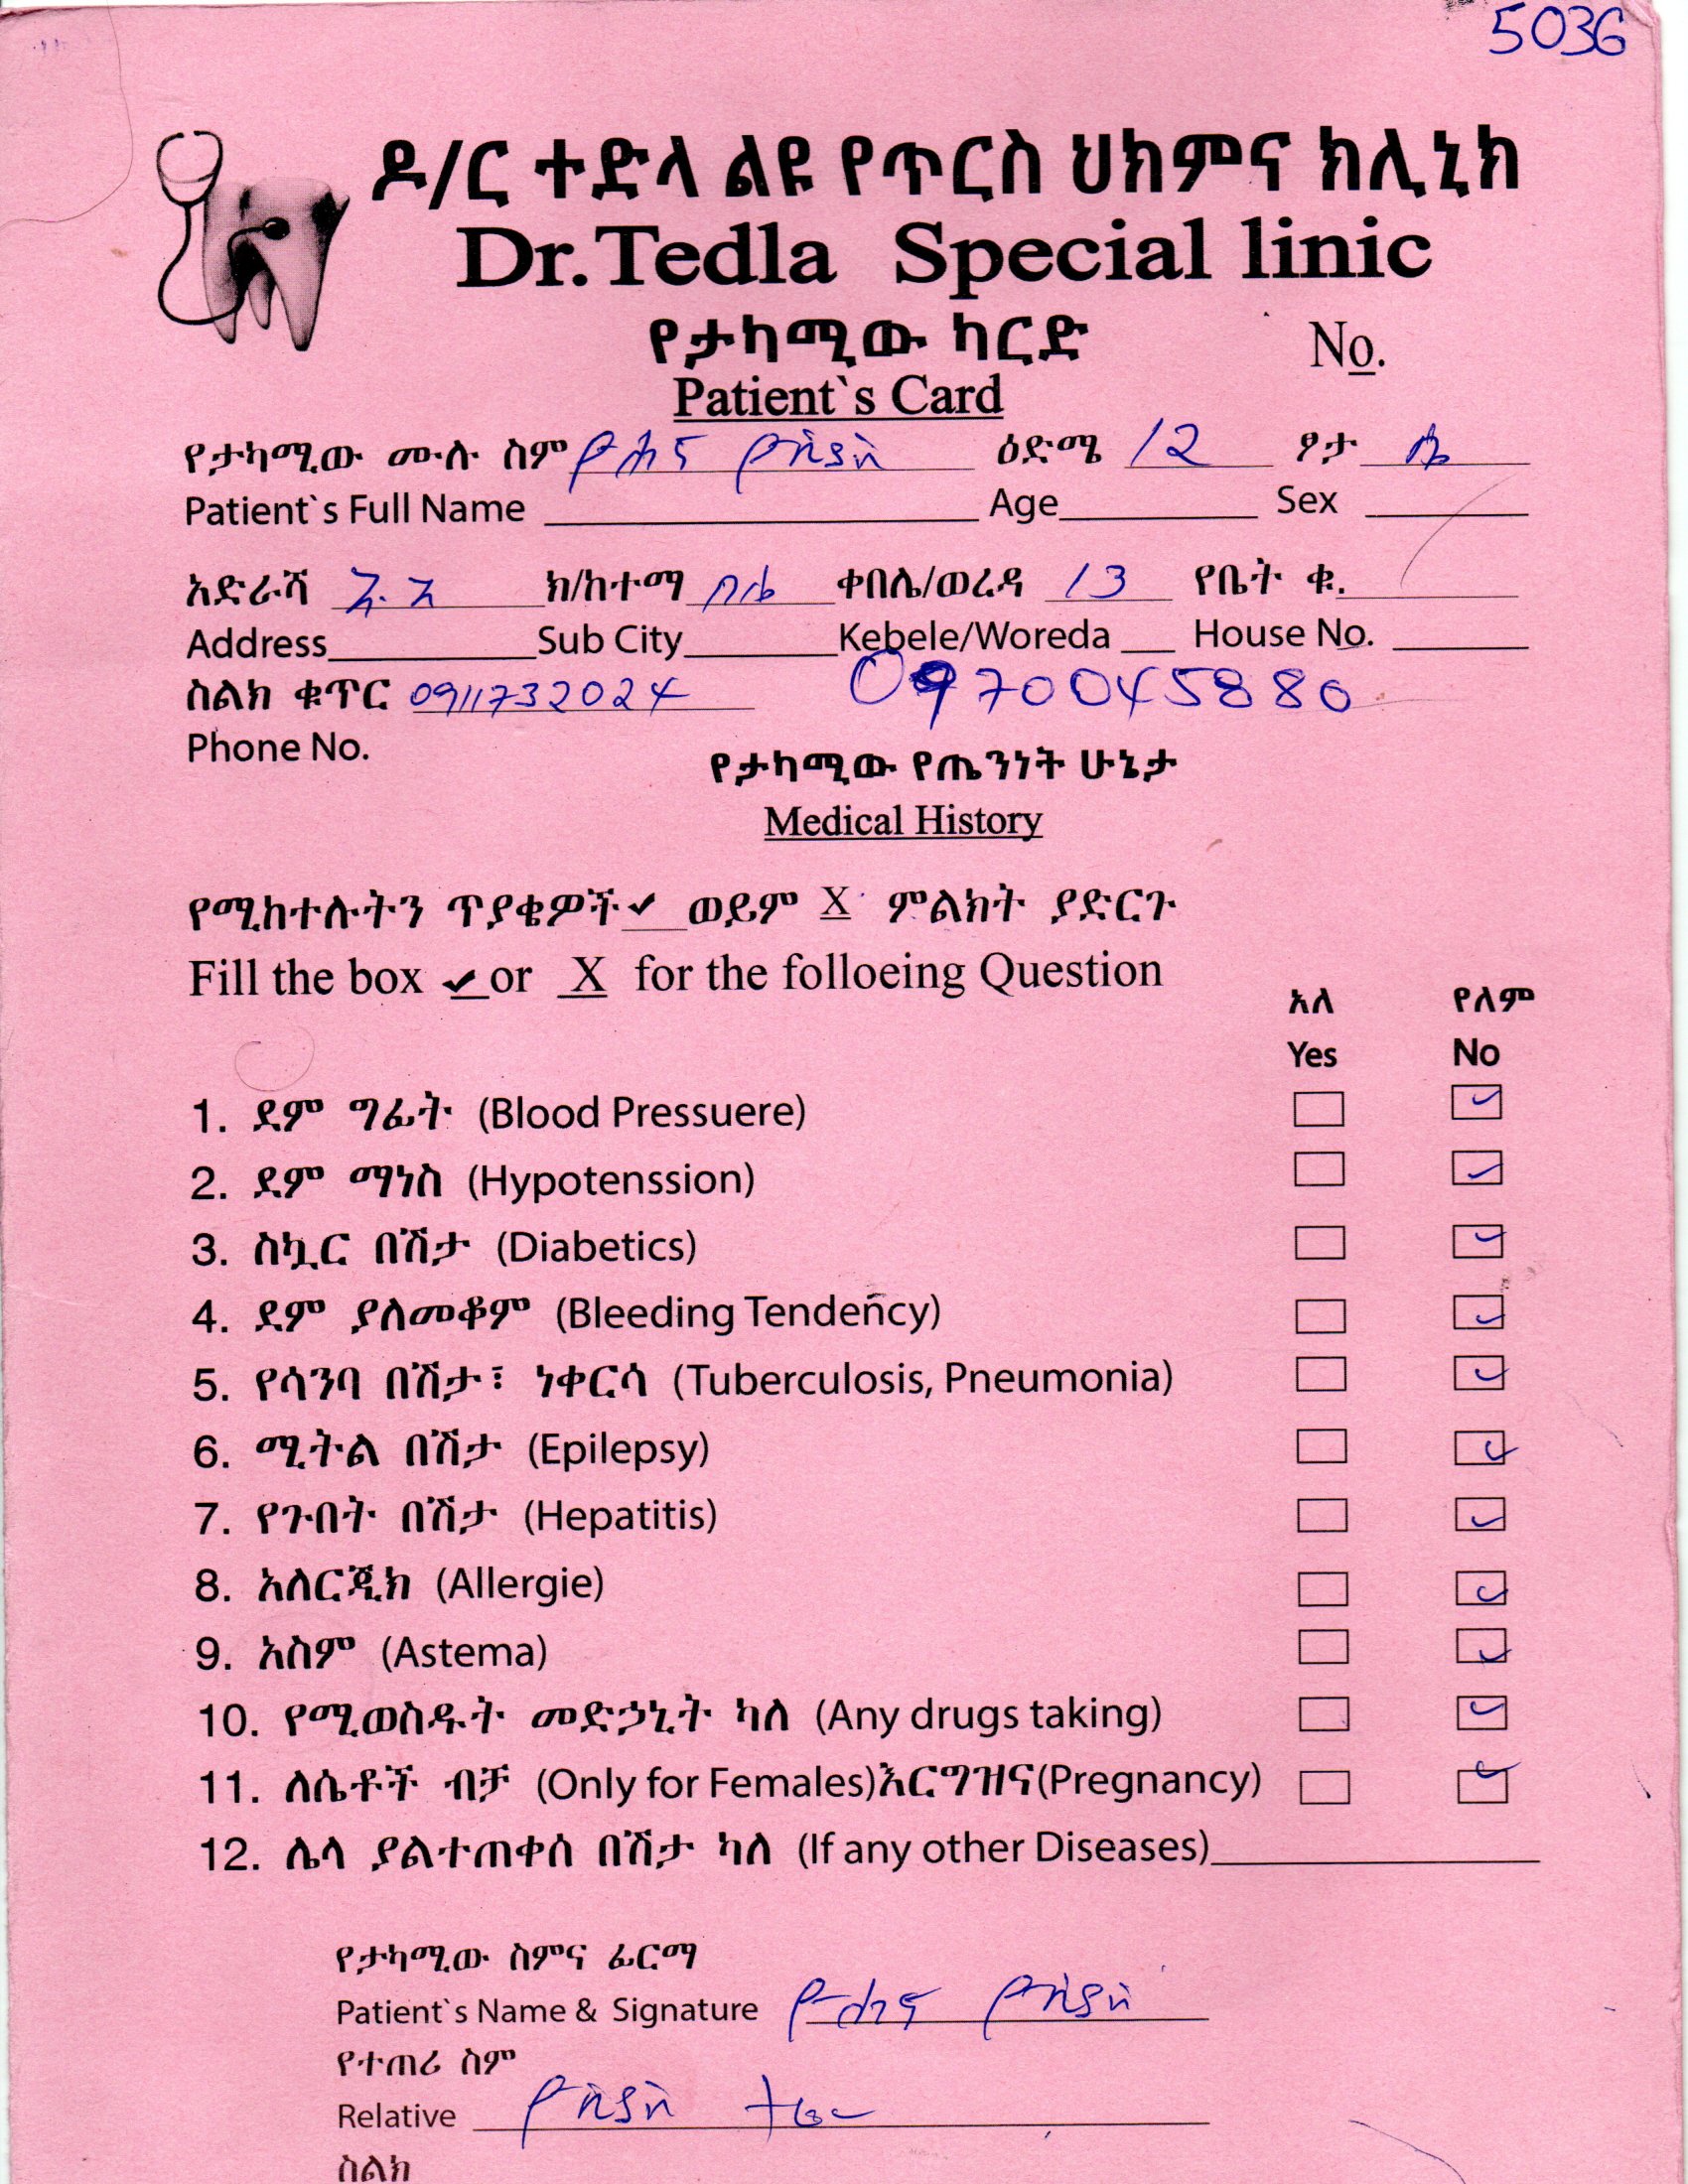 5036
ዶ/ር ተድላ ልዩ የጥርስ ህክምና ክሊኒክ
Dr.Tedla Special linic
የታካሚው ካርድ No.
Patient`s Card
የታካሚው ሙሉ ስም ዮሐና ዮሴያስ ዕድሜ 12 ፆታ ሴ
Patient`s Full Name Age Sex
አድራሻ አ.አ ክ/ከተማ ቦሌ ቀበሌ/ወረዳ 13 የቤት ቁ.
Address Sub City Kebele/Woreda House No.
ስልክ ቁጥር 0911732024 0970045880
Phone No.
የታካሚው የጤንነት ሁኔታ
Medical History
የሚከተሉትን ጥያቄዎች ✔ ወይም X ምልክት ያድርጉ
Fill the box ✔ or X for the folloeing Question
አለ የለም
Yes No
1. ደም ግፊት (Blood Pressuere) ✓
2. ደም ማነስ (Hypotenssion) ✓
3. ስኳር በሽታ (Diabetics) ✓
4. ደም ያለመቆም (Bleeding Tendency) ✓
5. የሳንባ በሽታ፣ ነቀርሳ (Tuberculosis, Pneumonia) ✓
6. ሚትል በሽታ (Epilepsy) ✓
7. የጉበት በሽታ (Hepatitis) ✓
8. አለርጂክ (Allergie) ✓
9. አስም (Astema) ✓
10. የሚወስዱት መድኃኒት ካለ (Any drugs taking) ✓
11. ለሴቶች ብቻ (Only for Females)እርግዝና(Pregnancy) ✓
12. ሌላ ያልተጠቀሰ በሽታ ካለ (If any other Diseases)
የታካሚው ስምና ፊርማ
Patient`s Name & Signature ዮሐና ዮሴያስ
የተጠሪ ስም
Relative ዮሴያስ
ስልክ